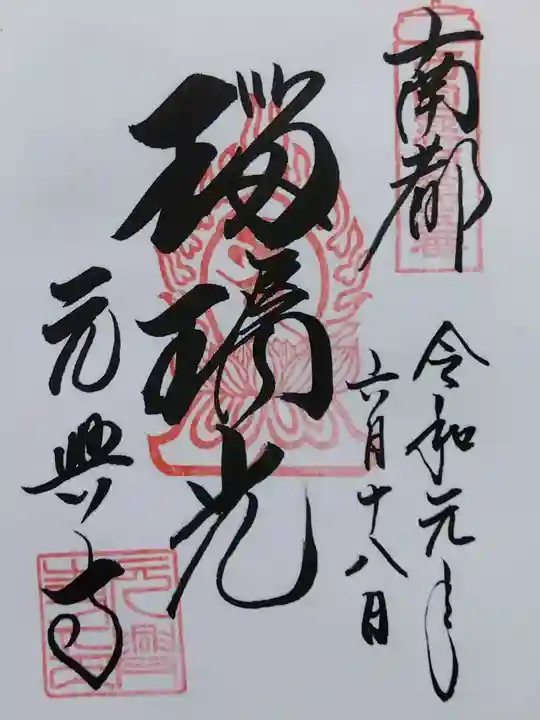 南都
令和元年
六月十八日
瑠璃光
元興寺